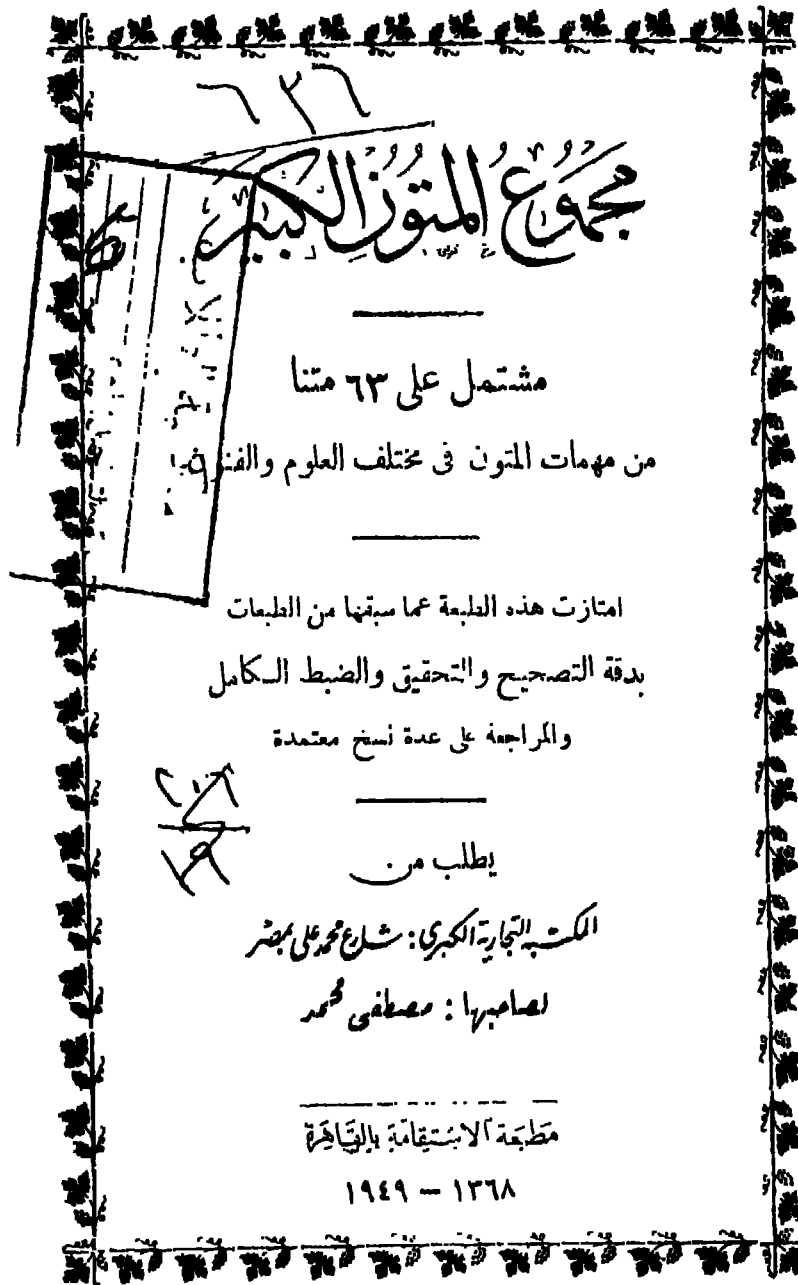 ٦٣٦
مجموع المتون الكبير
مشتمل على ٦٣ متنا
من مهمات المتون فى مختلف العلوم والفنون
امتازت هذه الطبعة عما سبقها من الطبعات
بدقة التصحيح والتحقيق والضبط الكامل
والمراجعة على عدة نسخ معتمدة
يطلب من
المكتبة التجارية الكبرى : شارع محمد على بمصر
لصاحبها : مصطفى محمد
مطبعة الاستقامة بالقاهرة
١٣٦٨ — ١٩٤٩